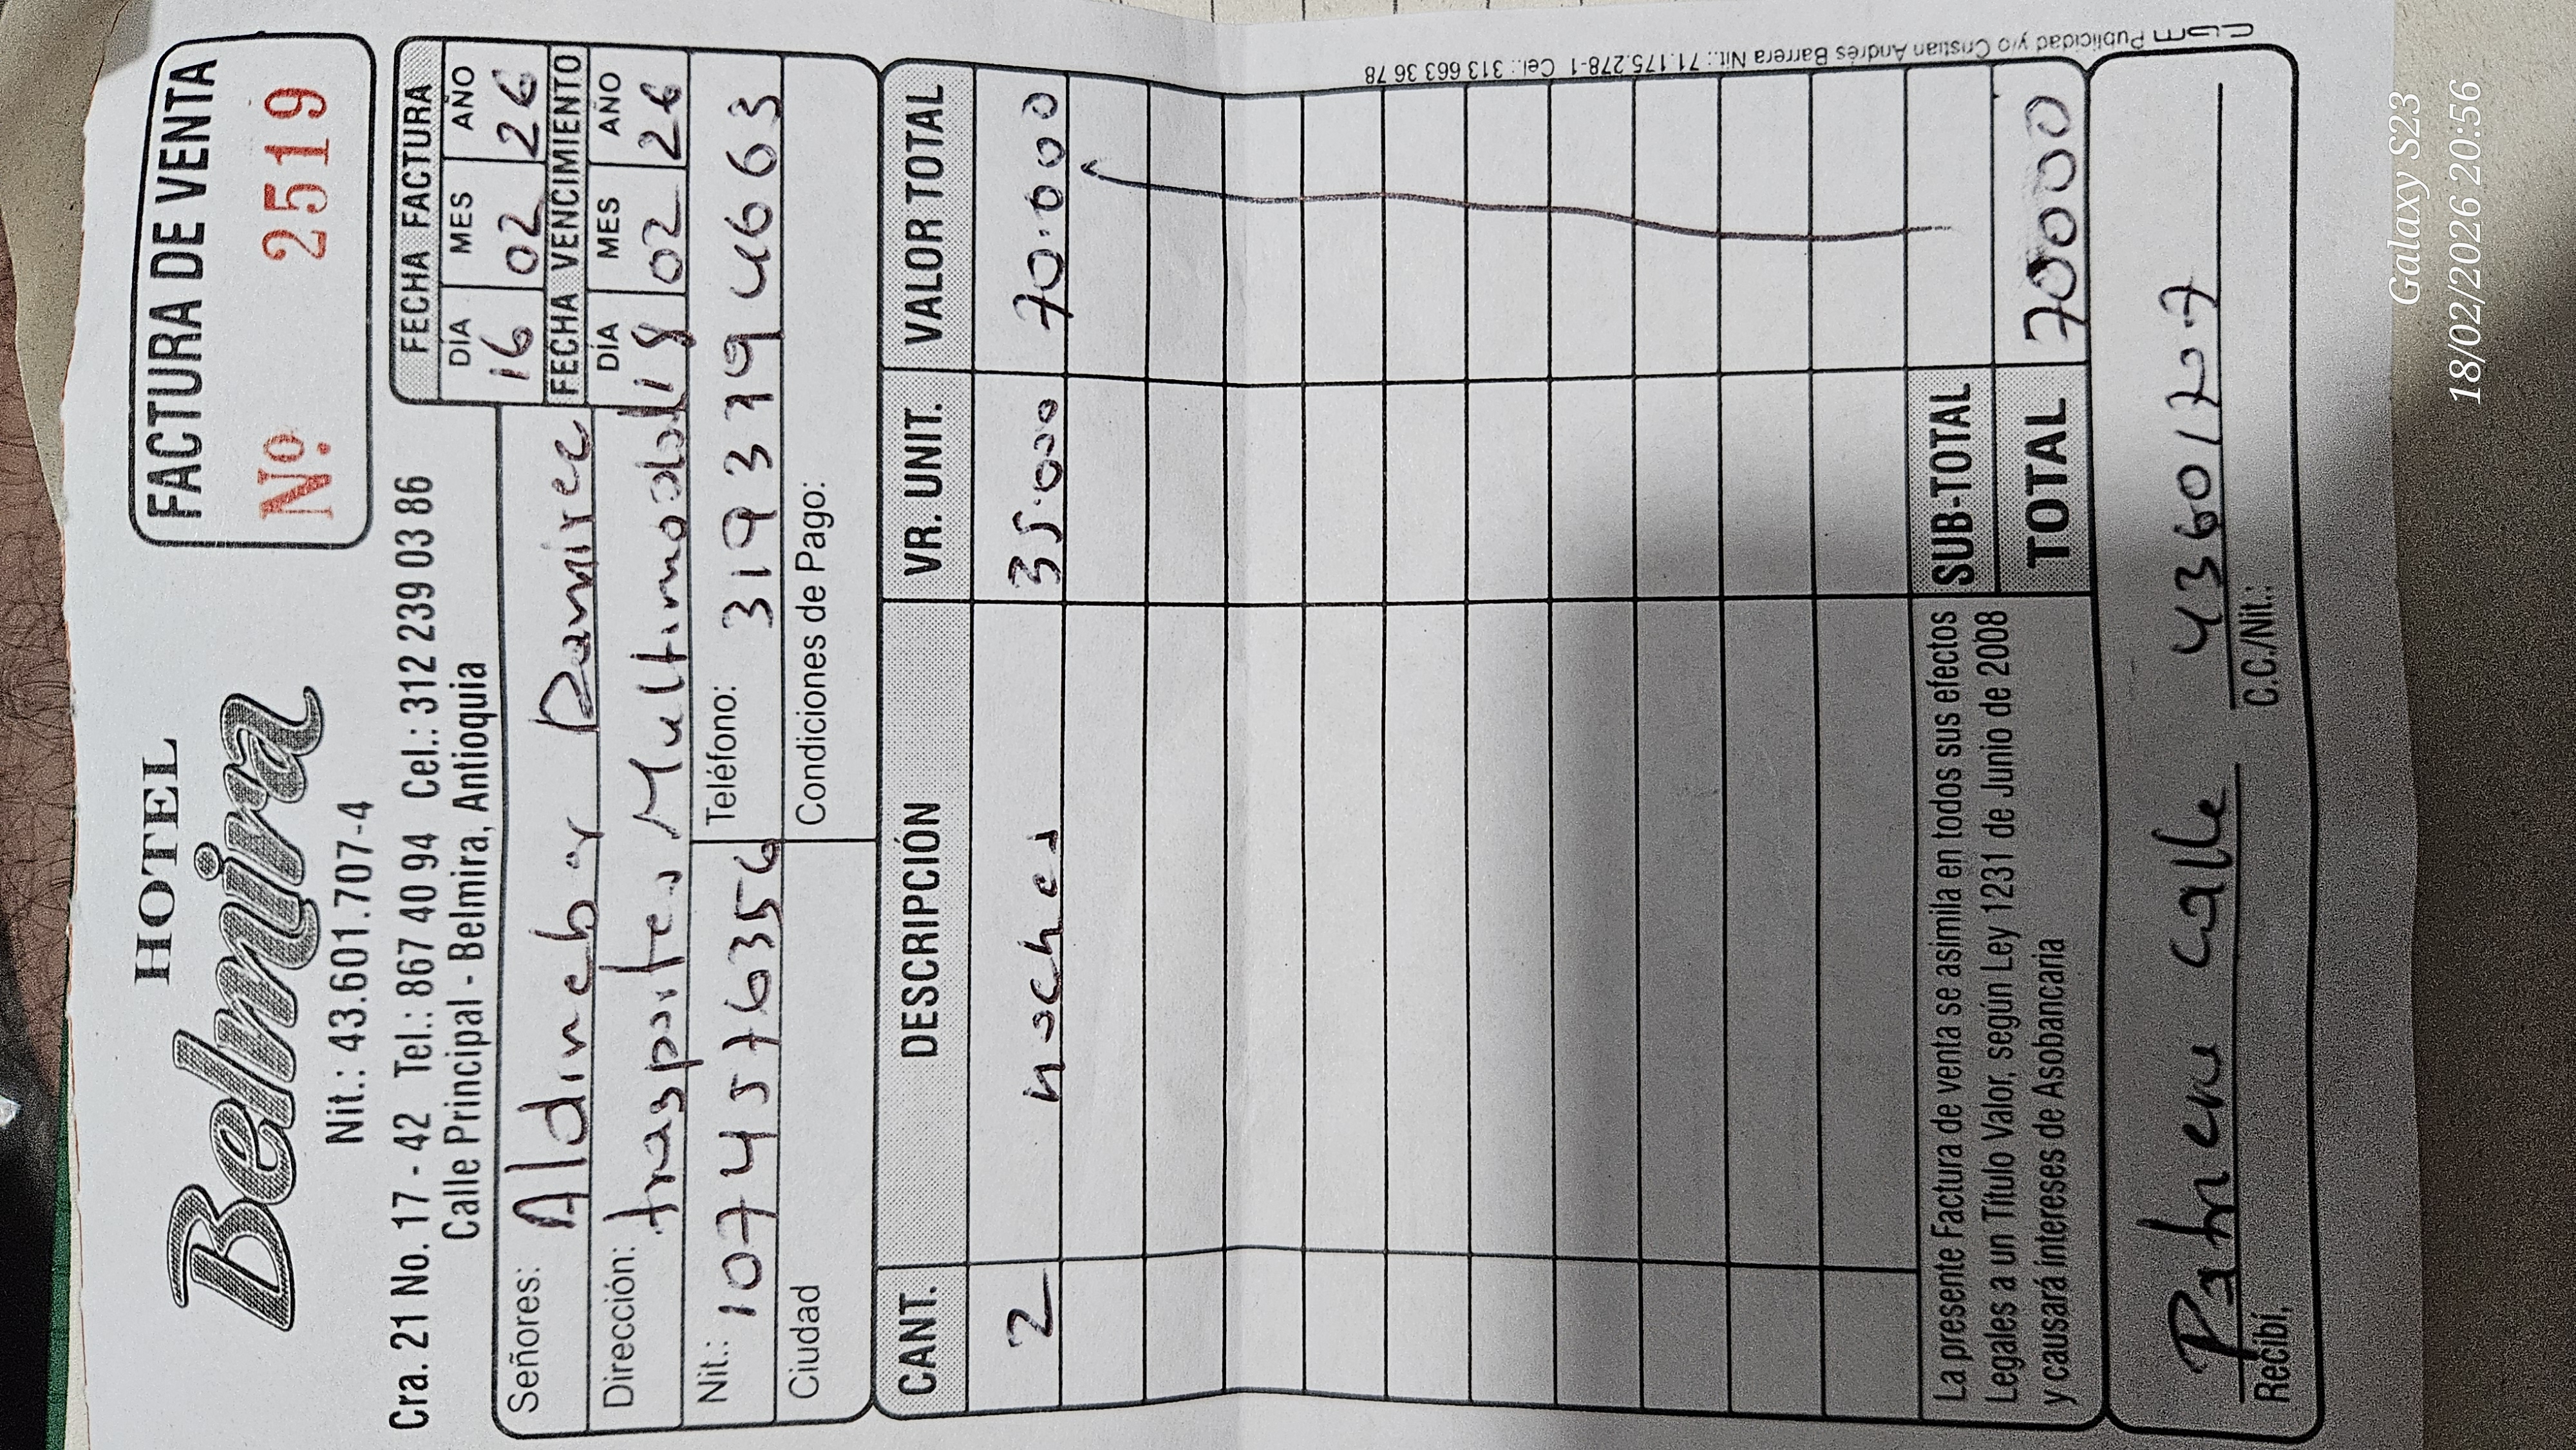 HOTEL
Belmira
Nit.: 43.601.707-4
Cra. 21 No. 17 - 42 Tel.: 867 40 94 Cel.: 312 239 03 86
Calle Principal - Belmira, Antioquia
FACTURA DE VENTA
No. 2519
FECHA FACTURA
DÍA MES AÑO
16 02 26
FECHA VENCIMIENTO
DÍA MES AÑO
18 02 26
Señores: Aldinebar Ramirez
Dirección: trasportes Multimodal
Nit.: 1074576356 Teléfono: 3193794663
Ciudad Condiciones de Pago:
CANT. DESCRIPCIÓN VR. UNIT. VALOR TOTAL
2 noches 35.000 70.000
La presente Factura de venta se asimila en todos sus efectos
Legales a un Título Valor, según Ley 1231 de Junio de 2008
y causará intereses de Asobancaria
SUB-TOTAL
TOTAL 70000
Recibí, calle
C.C./Nit.: 43601707
cbm Publicidad y/o Cristian Andrés Barrera Nit.: 71.175.278-1 Cel.: 313 663 36 78
Galaxy S23
18/02/2026 20:56